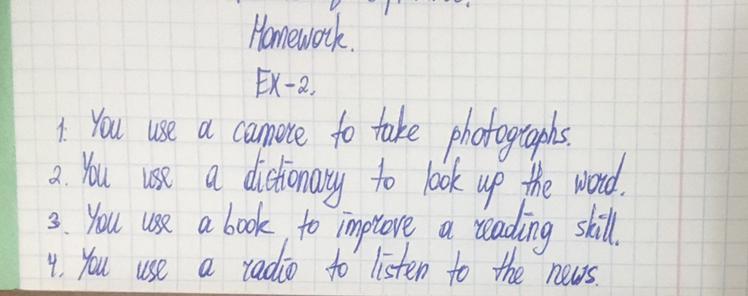 Homework.
Ex-2.
1. You use a camere to take photographs.
2. You use a dictionary to look up the word.
3. You use a book to improve a reading skill.
4. You use a radio to listen to the news.